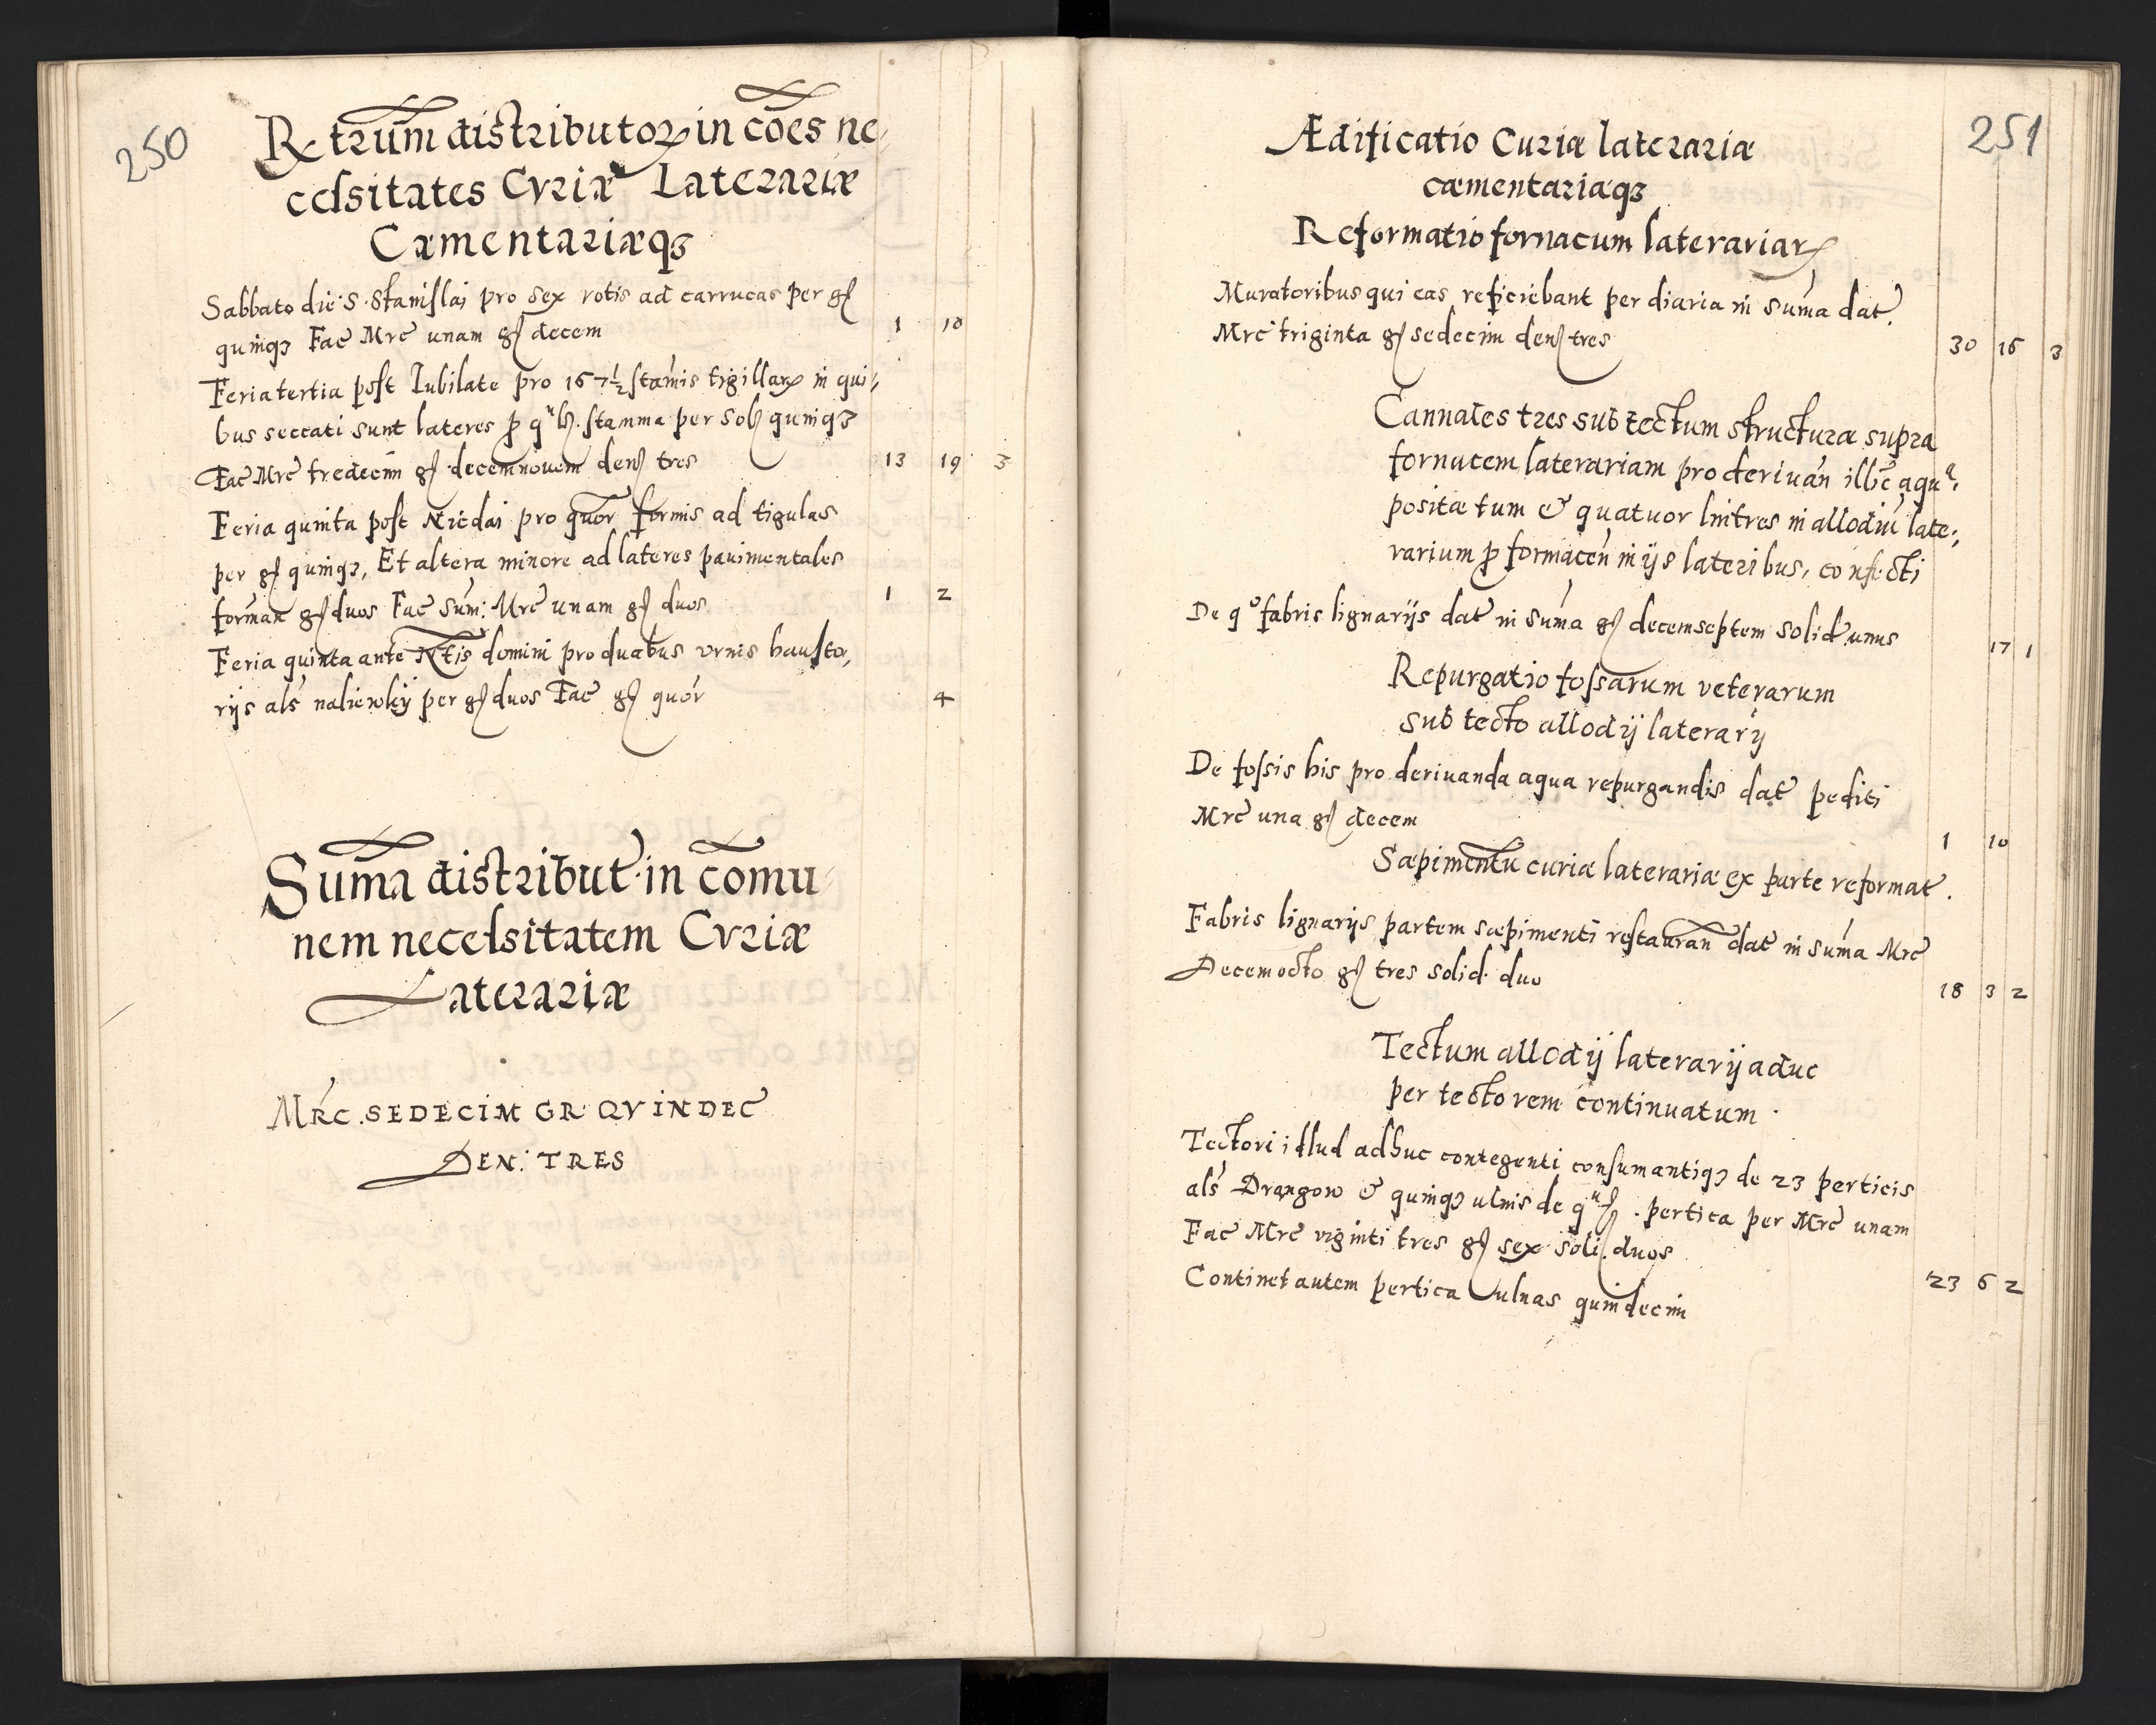 250
Retrum distributor in cões ne,
cessitates Cvriæ Laterariæ
Cæmentariæqȝ
Sabbato die S. Stanislai pro sex rotis ad carrucas per gſ
quinqȝ Fac̃ Mrc̃ unam gſ decem 1 10
Feria tertia post Iubilate pro 167½ stamis tigillarꝝ in qui,,
bus seccati sunt lateres p qᵃlꝫ stamma per Solꝫ quinqȝ
Fac̃ Mrc̃ tredecim gſ decemnovem denſ tres 13 19 3
Feria quinta post Nicolai pro quor formis ad tigulas
per gſ quinqȝ, Et altera minore ad lateres pauimentales
forman gſ duos Fac̃ Sum: Mrc̃ unam gſ duos 1 2
Feria quinta ante Ntis domini pro duabus vrnis hausto,
rijs als naliewky per gſ duos Fac̃ gſ quor 4
Suma distribut in comu
nem necessitatem Cvriæ
Laterariæ
Mrc. SEDECIM GR QVINDEC
DEN: TRES
251
Ædificatio Curiæ laterariæ
cæmentariæqȝ
Reformatio fornacum laterariarꝝ
Muratoribus qui eas reficiebant per diaria in suma dat
Mrc̃ triginta gſ sedecim denſ tres 30 16 3
Cannales tres sub tectum structuræ supra
fornacem laterariam pro deriuan illic aquᵃ,
positæ tum & quatuor lintres in allodiu late,,
rarium p formacen in ijs lateribus, confecti
De qᵒ fabris lignarijs dat in suma gſ decemseptem solid unus 17 1
Repurgatio fossarum veterarum
sub tecto allodij laterarij
De fossis his pro deriuanda aqua repurgandis dat pediti
Mrc̃ una gſ decem 1 10
Sæpimentu curiæ laterariæ ex parte reformat.
Fabris lignarijs partem sæpimenti restauran dat in suma Mrc̃
Decemocto gſ tres solid. duo 18 3 2
Tectum allodij laterarij aduc
per tectorem continuatum.
Tectori illud adhuc contegenti consumantiqȝ de 23 perticis
als Drangow & quinqȝ ulnis de qᵃlꝫ. pertica per Mrc̃ unam
Fac̃ Mrc̃ viginti tres gſ sex soli. duos
Continet autem pertica ulnas quindecim 23 6 2